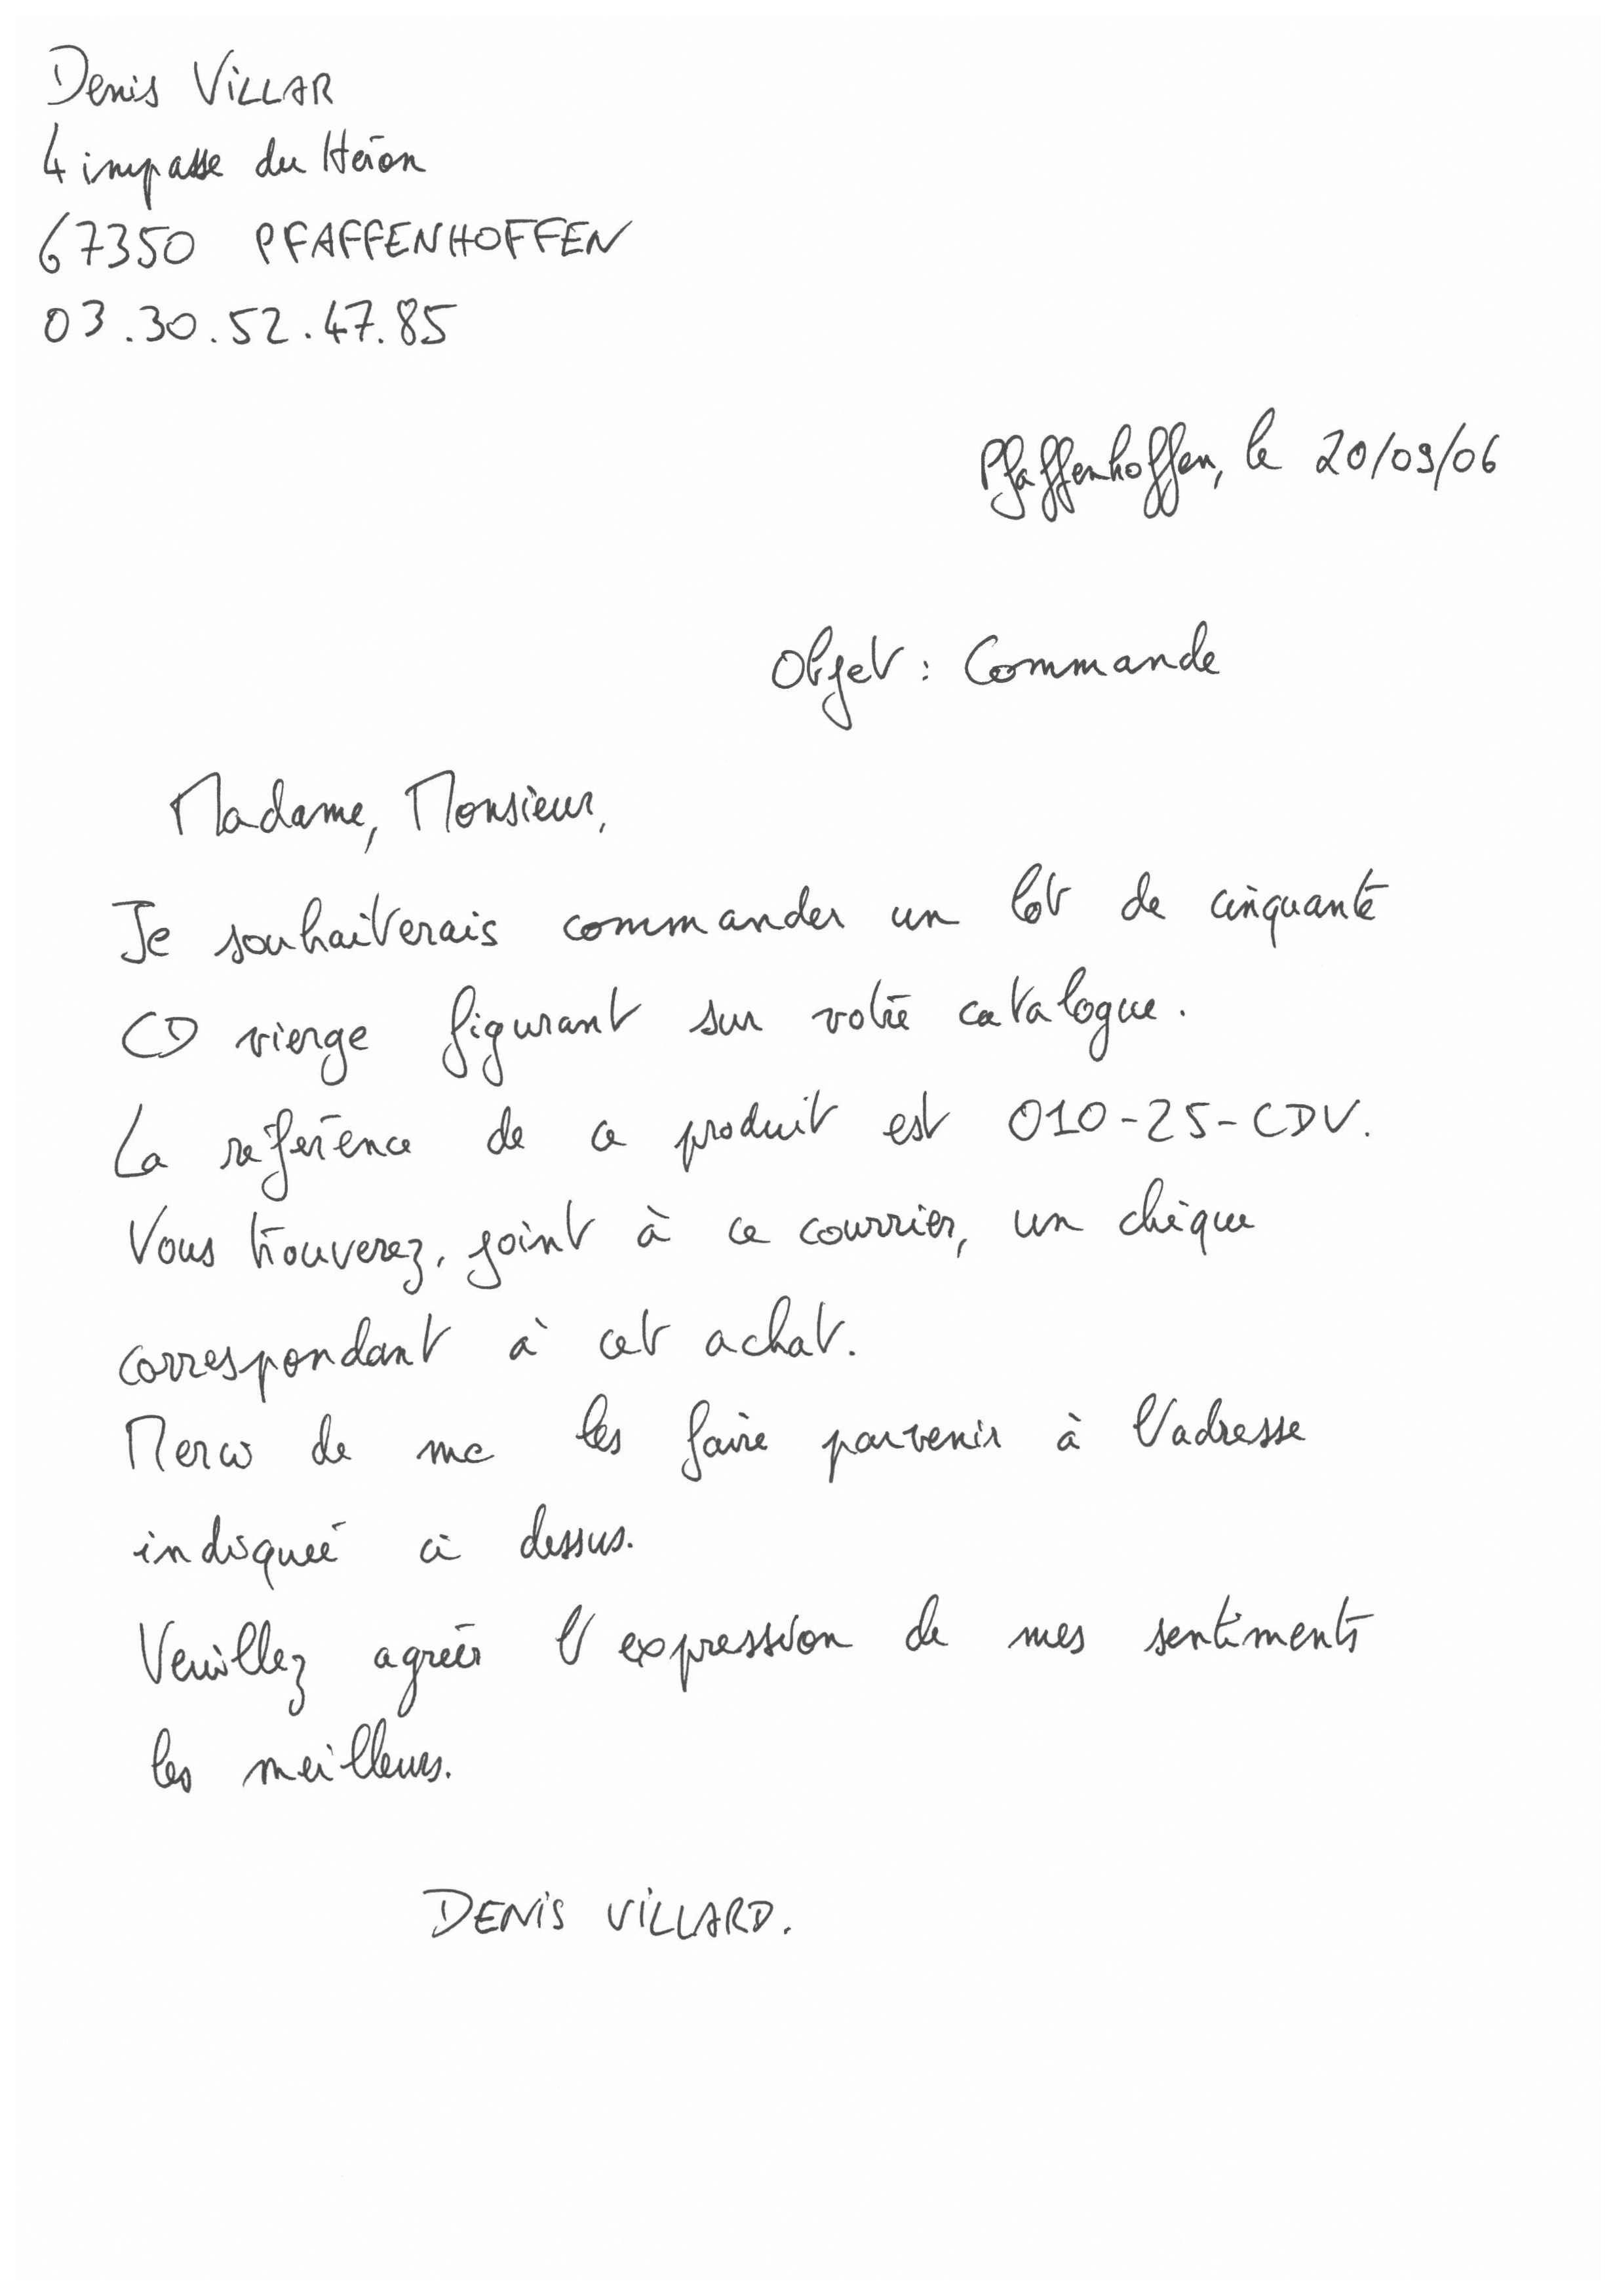 Denis VILLAR
4 impasse du Héron
67350 PFAFFENHOFFEN
03.30.52.47.85
Pfaffenhoffen, le 20/09/06
Objet : Commande
Madame, Monsieur,
Je souhaiterais commander un lot de cinquante
CD vierge figurant sur votre catalogue.
La référence de ce produit est 010-25-CDV.
Vous trouverez, joint à ce courrier, un chèque
correspondant à cet achat.
Merci de me les faire parvenir à l'adresse
indiquée ci dessus.
Veuillez agréer l'expression de mes sentiments
les meilleurs.
DENIS VILLARD.